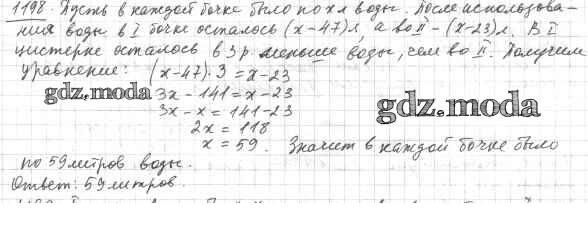 1198. Пусть в каждой бочке было по x л воды. После использова-
ния воды в I бочке осталось (x-47) л, а во II - (x-23) л. В I
цистерне осталось в 3 р меньше воды, чем во II. Получим
уравнение: (x-47)·3 = x-23
gdz.moda 3x - 141 = x - 23 gdz.moda
3x - x = 141 - 23
2x = 118
x = 59. Значит в каждой бочке было
по 59 литров воды.
Ответ: 59 литров.